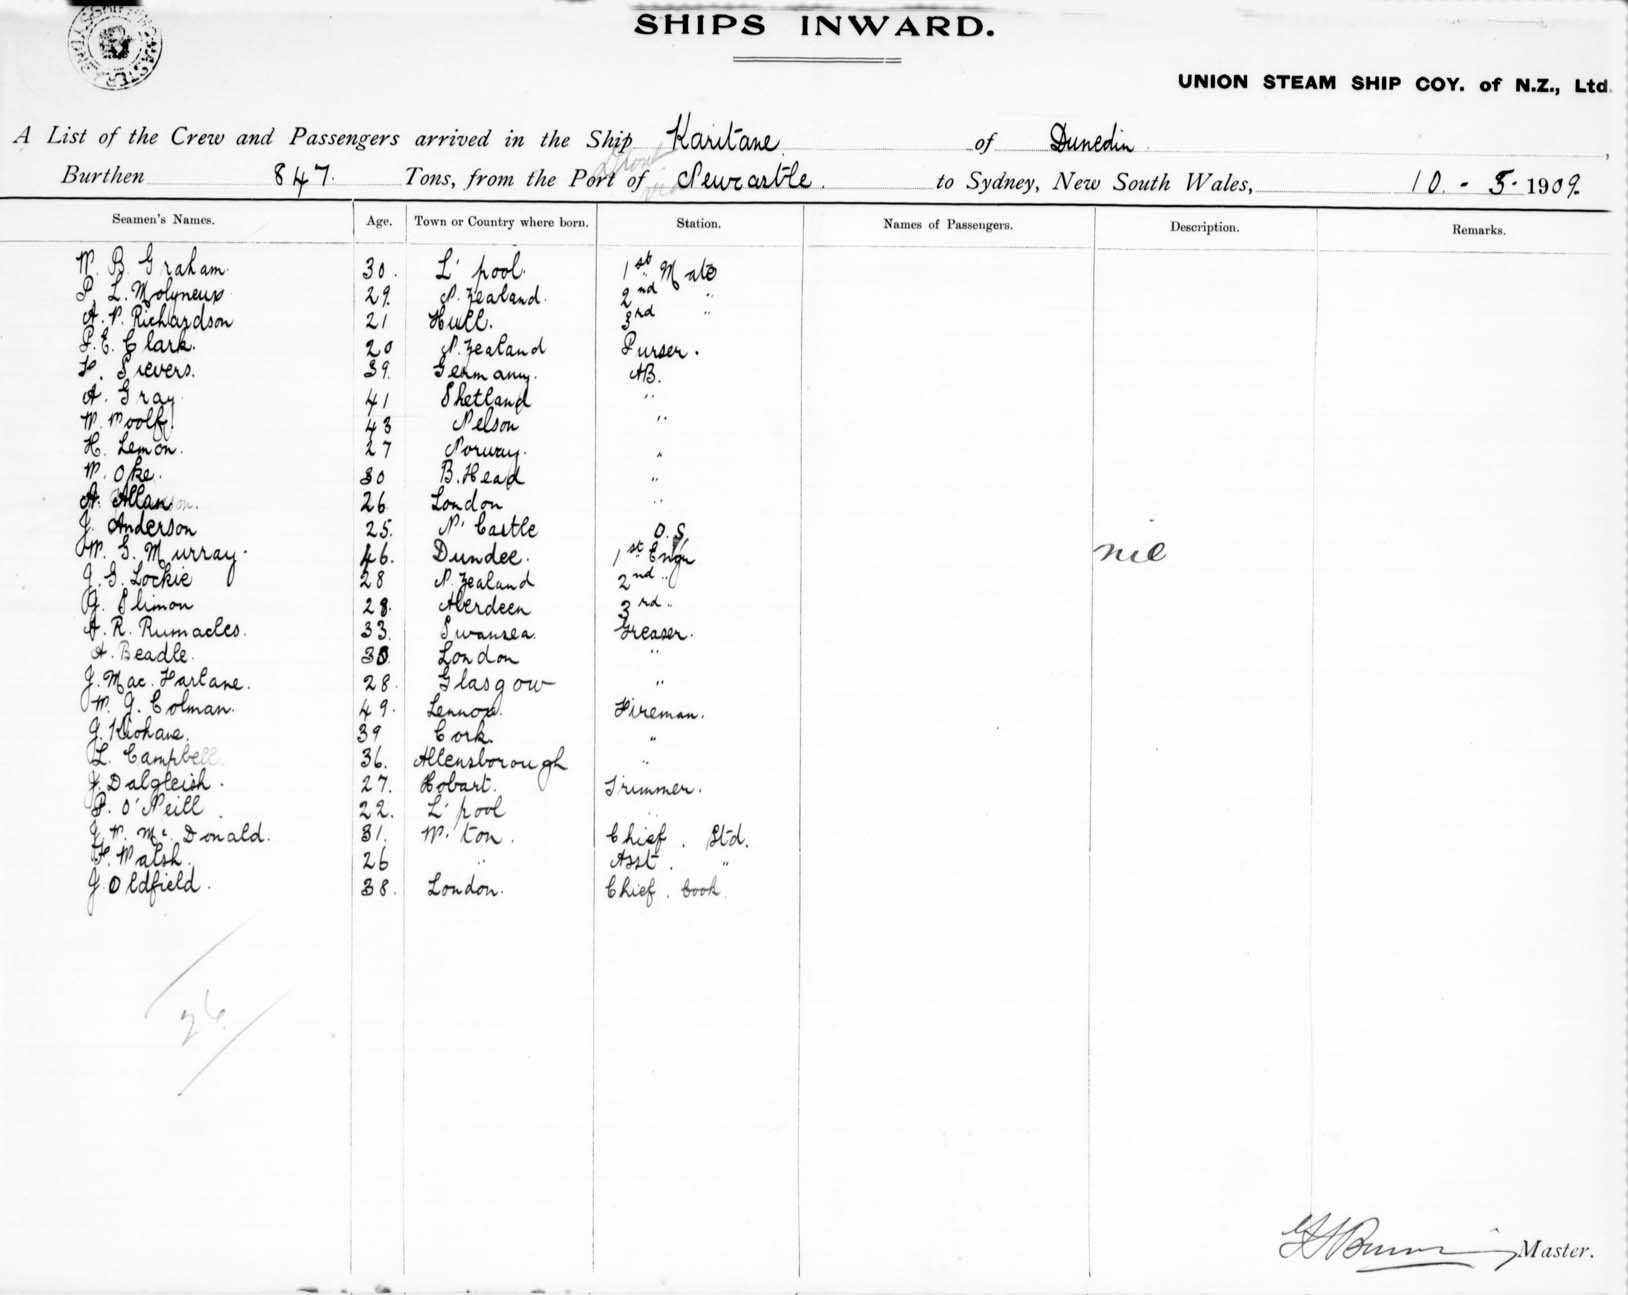 SHIPS INWARD.
UNION STEAM SHIP COY. of N.Z., Ltd.
A List of the Crew and Passengers arrived in the Ship Karitane of Dunedin,
Burthen 847 Tons, from the Port of Newcastle. to Sydney, New South Wales, 10. - 5. 1909.
Seamen's Names. Age. Town or Country where born. Station. Names of Passengers. Description. Remarks.
W. B. Graham. 30. L'pool. 1st Mate
P. L. Molyneux 29. N. Zealand. 2nd "
A. N. Richardson 21 Hull. 3rd "
P. E. Clark. 20 N. Zealand Purser.
H. Sievers. 39. Germany. AB.
A. Gray. 41 Shetland "
W. Woolf 43 Nelson "
H. Lemon. 27 Norway. "
W. Oke. 30 B. Head "
A. Allan 26 London "
J. Anderson 25. N'Castle O.S.
W. G. Murray. 46. Dundee. 1st Engr
J. G. Lockie 28 N. Zealand 2nd "
G. Slimon 28. Aberdeen 3rd "
A. R. Rumacles. 33. Swansea. Greaser.
A. Beadle. London "
J. Mac. Farlane. 28. Glasgow "
W. J. Colman. 49. Lennox. Fireman.
J. Kiohane. 39 Cork. "
L. Campbell 36. Allensborough "
J. Dalgleish. 27. Hobart. Trimmer.
P. O'Neill. 22. L'pool "
J. W. Mc. Donald. 31. W'ton. Chief. Std.
F. Walsh. 26 " Asst. "
J. Oldfield. 38. London. Chief. Cook.
nil
26
Master.